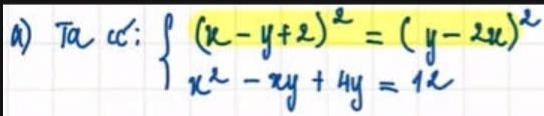 a) Ta có: { (x - y + 2)² = (y - 2x)²
x² - xy + 4y = 12